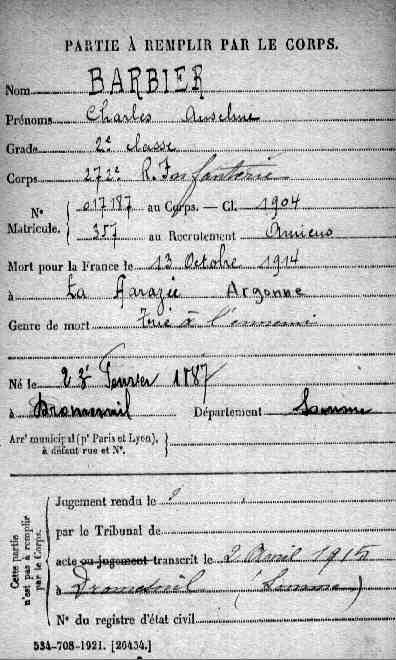 PARTIE À REMPLIR PAR LE CORPS.
Nom BARBIER
Prénoms Charles Anselme
Grade 2e classe
Corps 272e R. Infanterie
N° Matricule. { 017187 au Corps. — Cl. 1904
357 au Recrutement Amiens
Mort pour la France le 13 Octobre 1914
à La Harazée Argonne
Genre de mort tué à l'ennemi
Né le Février
à Dromesnil Département Somme
Arrt municipal (pr Paris et Lyon), à défaut rue et N°. }
Cette partie n'est pas à remplir par le Corps.
Jugement rendu le
par le Tribunal de
acte ou jugement transcrit le 2 Avril 1915
à Dromesnil (Somme)
N° du registre d'état civil
534-708-1921. [26434.]